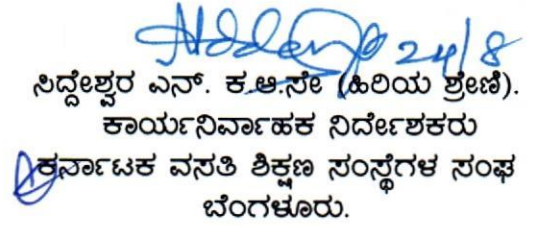 24/8
ಸಿದ್ದೇಶ್ವರ ಎನ್. ಕ.ಆ.ಸೇ (ಹಿರಿಯ ಶ್ರೇಣಿ).
ಕಾರ್ಯನಿರ್ವಾಹಕ ನಿರ್ದೇಶಕರು
ಕರ್ನಾಟಕ ವಸತಿ ಶಿಕ್ಷಣ ಸಂಸ್ಥೆಗಳ ಸಂಘ
ಬೆಂಗಳೂರು.